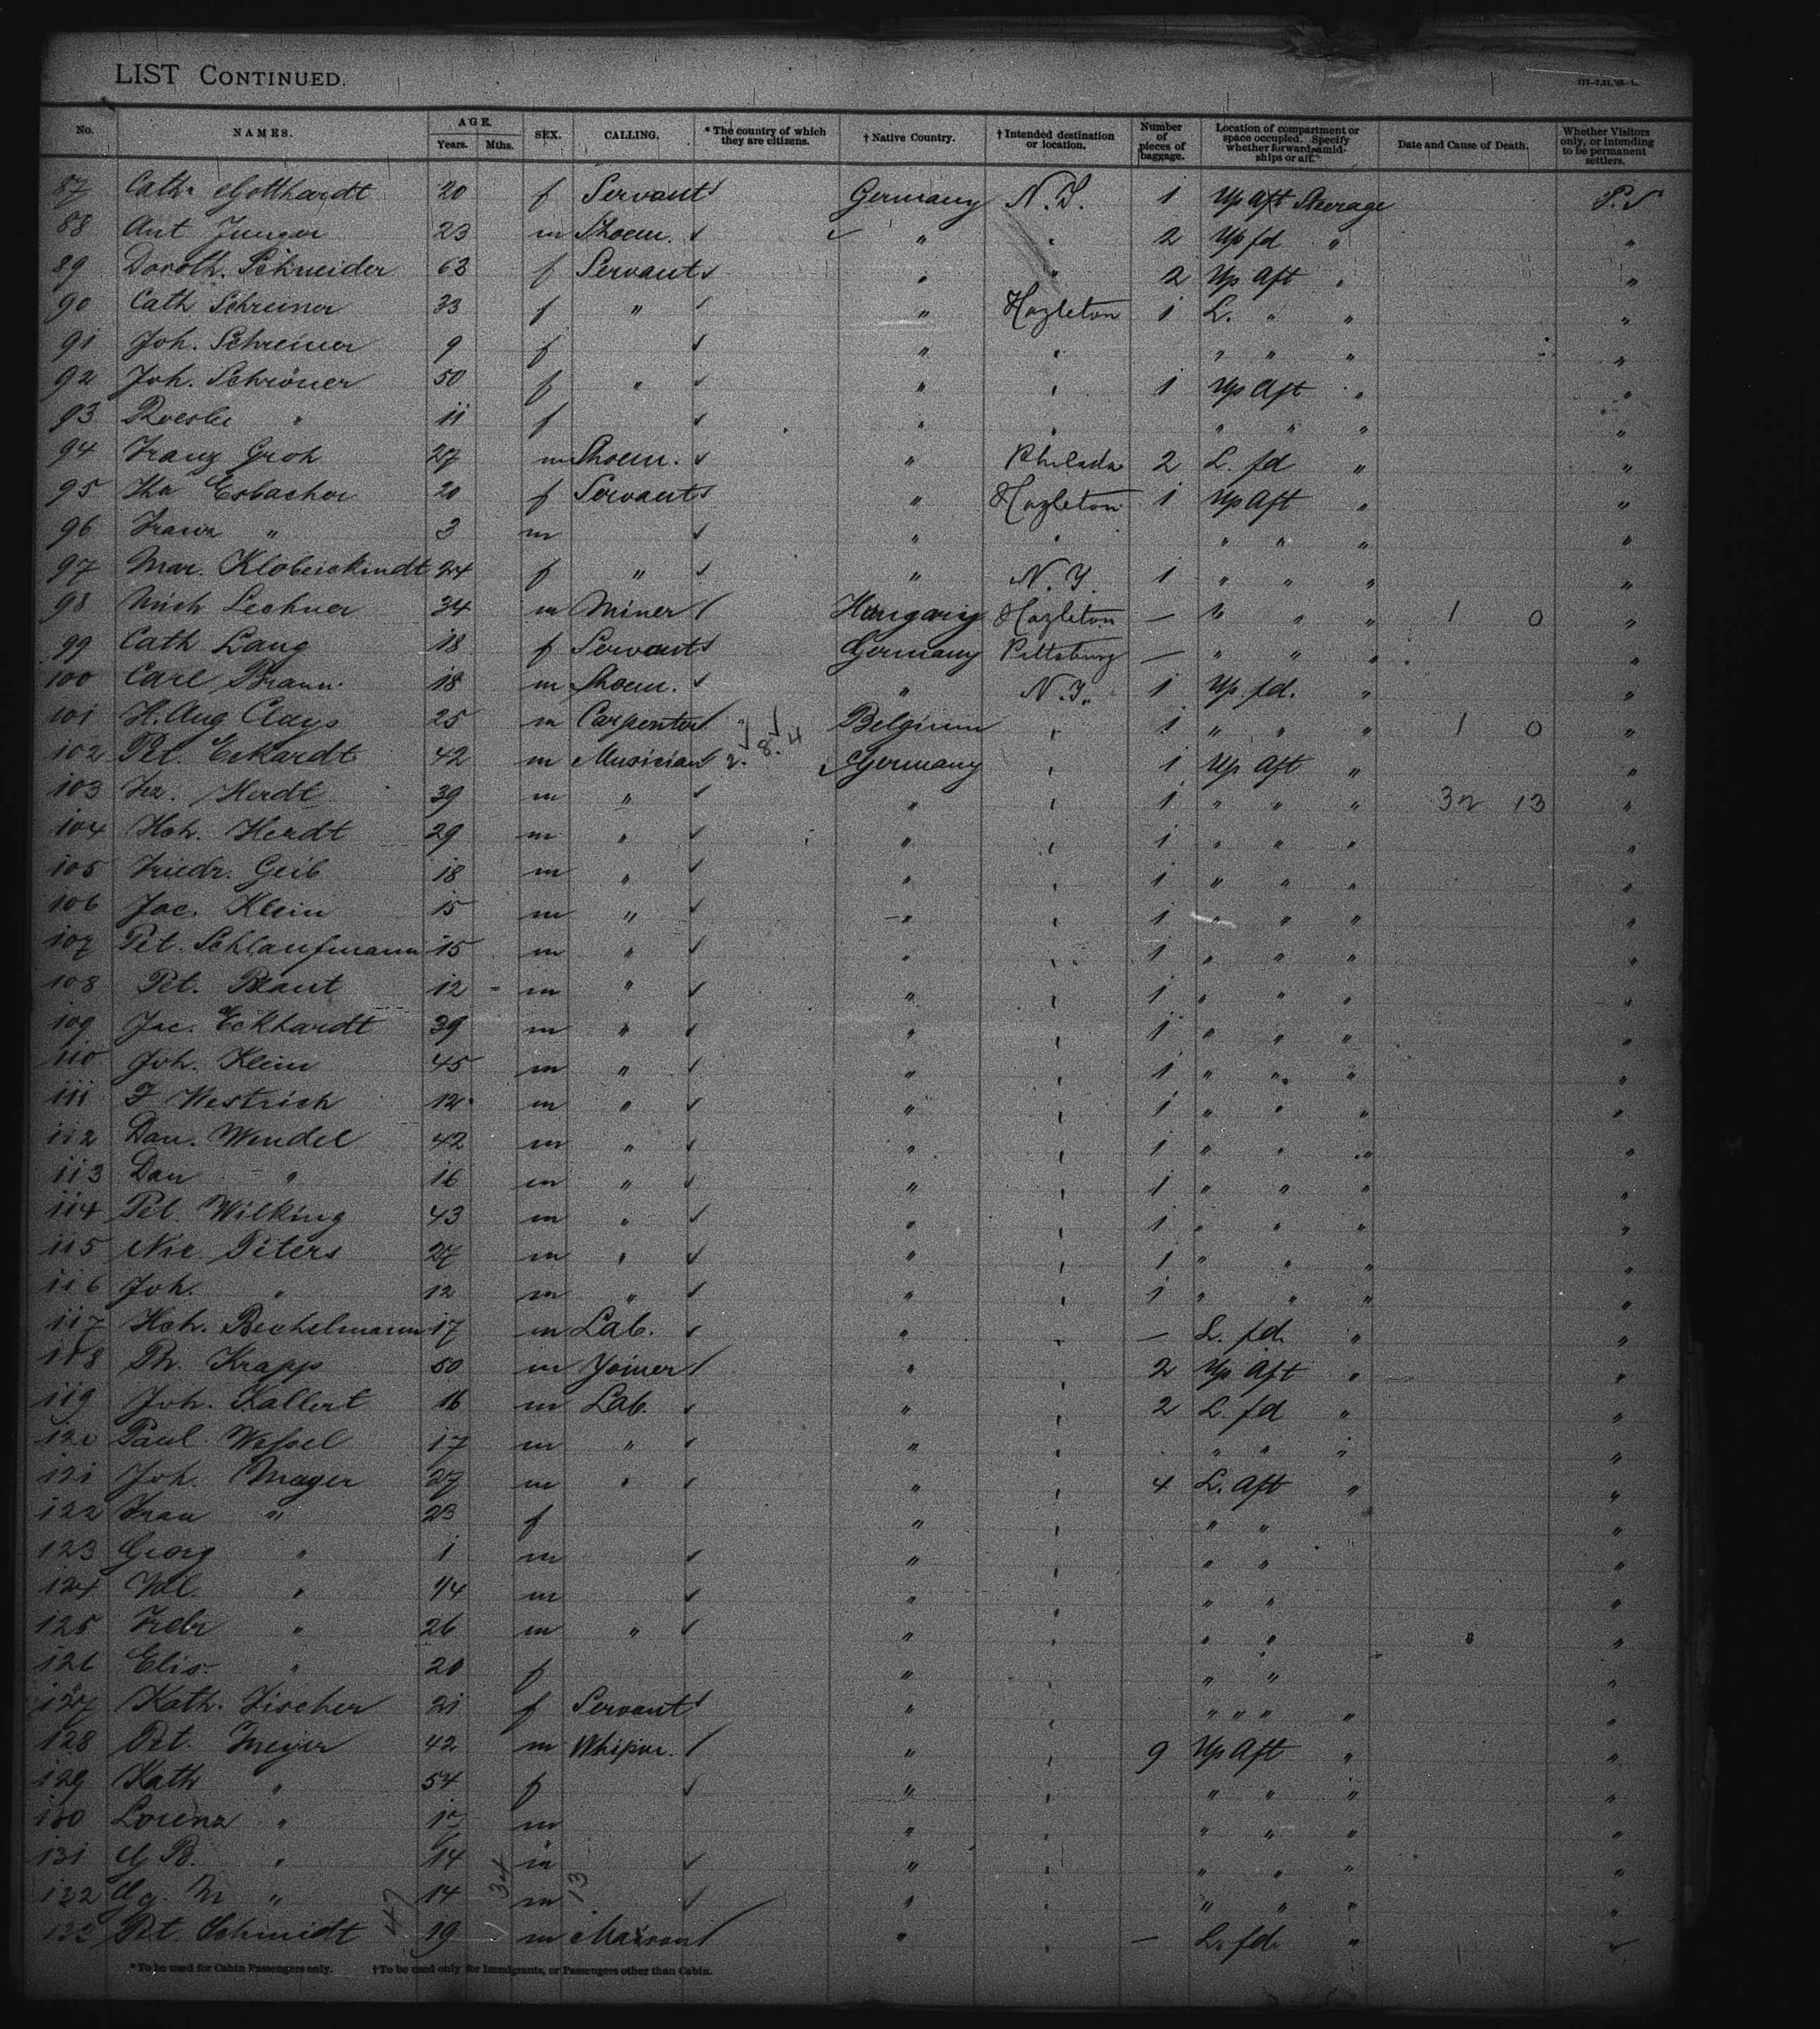 LIST CONTINUED.
No. NAMES. AGE. Years. Mths. SEX. CALLING. * The country of which they are citizens. † Native Country. † Intended destination or location. Number of pieces of baggage. Location of compartment or space occupied. Specify whether forward, amidships or aft. Date and Cause of Death. Whether Visitors only, or intending to be permanent settlers.
87 Cath. Gotthardt 20 f Servant Germany N.Y. 1 Up Aft Steerage P.S
88 Ant 23 m Shoem. " " 2 Up fd " "
89 Doroth. Schneider 63 f Servant " " 2 Up Aft " "
90 Cath Schreiner 33 f " " Hazleton 1 L. " " "
91 Joh. Schreiner 9 f " " " " " "
92 Joh. Schröner 50 f " " " 1 Up Aft " "
93 " 11 f " " " " " "
94 Franz Groh 27 m Shoem. " Philada 2 L. fd " "
95 Esbacher 20 f Servant " Hazleton 1 Up Aft " "
96 Franz " 3 m " " " " " "
97 Mar. 24 f " " N.Y. 1 " " " "
98 Mich Lechner 34 m Miner Hungary Hazleton — " " " 1 0 "
99 Cath Lang 18 f Servant Germany Pittsburg — " " " "
100 Carl Braun 18 m Shoem. " N.Y. 1 Up. fd. " "
101 H. Aug Clays 25 m Carpenter Belgium " 1 " " " 1 0 "
102 Pet. Eckardt 42 m Musician Germany " 1 Up Aft " "
103 Herdt 39 m " " " 1 " " " 32 13 "
104 Hch. Herdt 29 m " " " 1 " " " "
105 Friedr. Geib 18 m " " " 1 " " " "
106 Jac. Klein 15 m " " " 1 " " " "
107 Pet. Schlaufmann 15 m " " " 1 " " " "
108 Pet. 12 m " " " 1 " " " "
109 Jac. Eckhardt 39 m " " " 1 " " " "
110 Joh. Klein 45 m " " " 1 " " " "
111 F Westrich 12 m " " " 1 " " " "
112 Dan. Wendel 42 m " " " 1 " " " "
113 Dan " 16 m " " " 1 " " " "
114 Pet. Wilking 43 m " " " 1 " " " "
115 Nic Peters 27 m " " " 1 " " " "
116 Joh. " 12 m " " " 1 " " " "
117 Hch. Bechelmann 17 m Lab. " " — L. fd. " "
118 Ph. Krapp 50 m Joiner " " 2 Up Aft " "
119 Joh. Kallert 16 m Lab. " " 2 L. fd " "
120 Paul Wessel 17 m " " " " " " "
121 Joh. Mayer 27 m " " " 4 L. Aft " "
122 Frau " 23 f " " " " "
123 Georg " 1 m " " " " "
124 Wil. " 1/4 m " " " " "
125 Fredr " 26 m " " " " " "
126 Elis. " 20 f " " " " "
127 Kath. Fischer 21 f Servant " " " " " " "
128 Pet. Meyer 42 m " " 9 Up Aft " "
129 Kath " 54 f " " " " " "
130 Lorenz " m " " " " " "
131 " 14 m " " " " " "
132 " 14 m " " " " " "
133 Pet. Schmidt 19 m " " — L. fd. " "
* To be used for Cabin Passengers only. † To be used only for Immigrants, or Passengers other than Cabin.